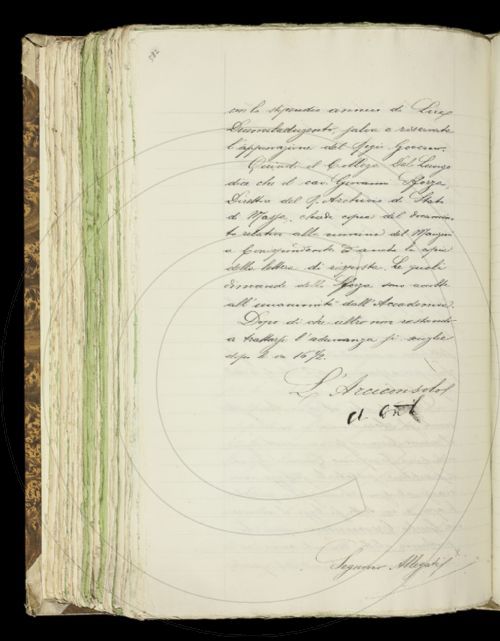 582
con lo stipendio annuo di Lire
Duemiladugento, salva e riservata
l'approvazione del Regio Governo.
Quindi il Collega Del Lungo
dice che il cav. Giovanni Sforza,
Direttore del R. Archivio di Stato
di Massa, chiede copia del documen
to relativo alle
e anche la copia
della lettera di risposta. Le quali
domande dello Sforza sono accolte
all'unanimità dall'Accademia.
Dopo di che altro non restando
a trattarsi l'adunanza si scioglie
dopo le ore 16 1/2.
L'Arciconsolo
A. Conti
Seguono Allegati